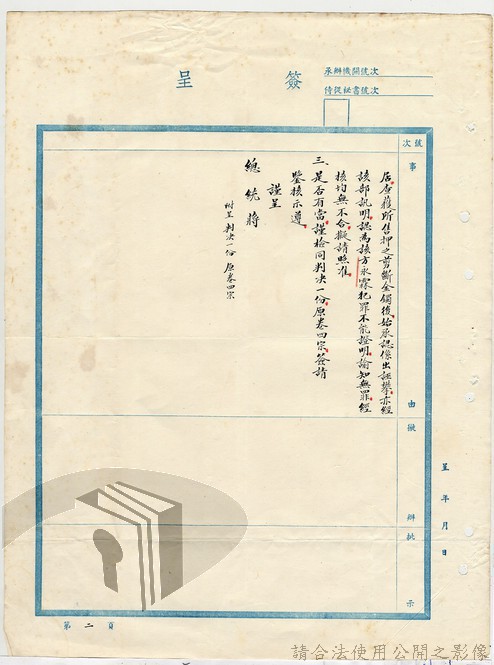 簽呈
承辦機關號次
侍從祕書號次
號次
事由
擬辦
批示
店查獲所售押之剪斷金鐲後始承認係出誣攀亦經
該部訊明認為該方永霖犯罪不能證明諭知無罪經
核均無不合擬請照准
三、是否有當謹檢同判決一份原卷四宗簽請
鑒核示遵
謹呈
總統蔣
附呈判決一份原卷四宗
呈年月日
第二頁
請合法使用公開之影像